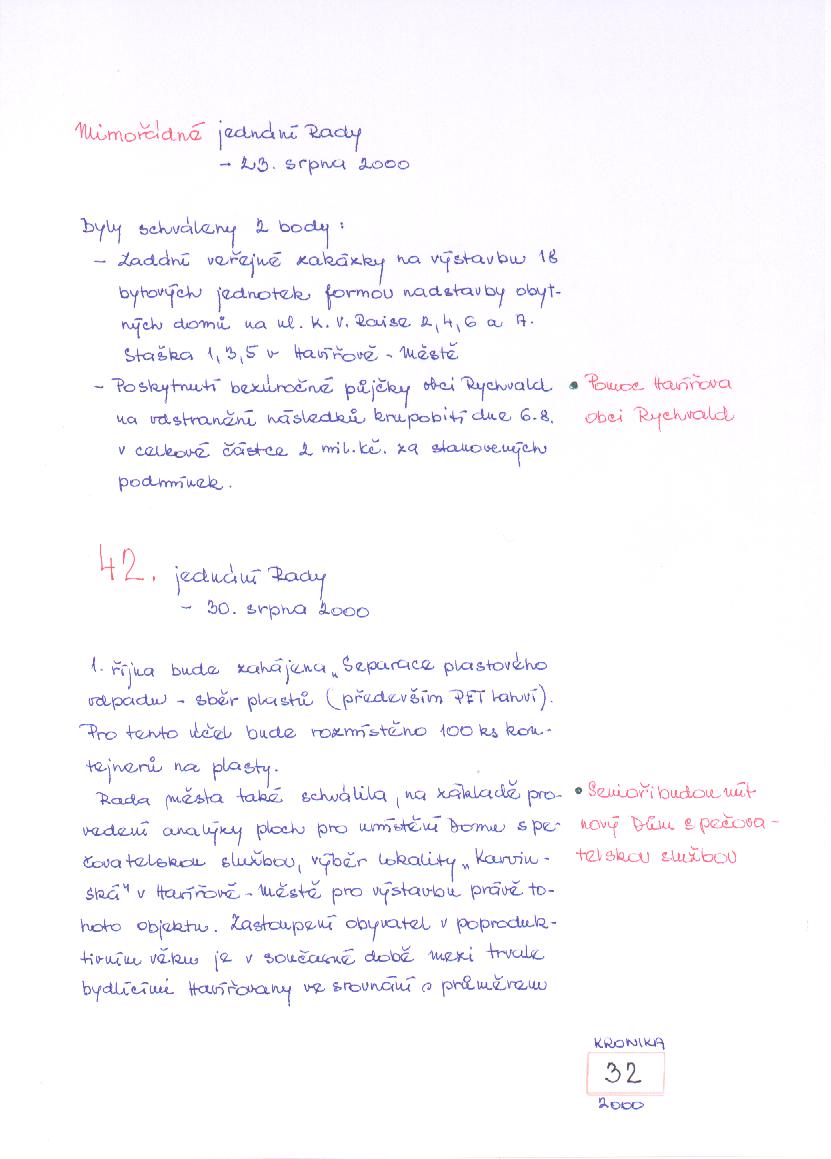 Mimořádné jednání Rady
- 23. srpna 2000
Byly schváleny 2 body :
- Zadání veřejné zakázky na výstavbu 18
bytových jednotek formou nadstavby obyt-
ných domů na ul. K. V. Raise 2,4,6 a A.
Staška 1,3,5 v Havířově - Městě
- Poskytnutí bezúročné půjčky obci Rychvald
na odstranění následků krupobití dne 6.8.
v celkové částce 2 mil.kč. za stanovených
podmínek.
• Pomoc Havířova
obci Rychvald
42. jednání Rady
- 30. srpna 2000
1. října bude zahájena „Separace plastového
odpadu - sběr plastů (především PET lahví).
Pro tento účel bude rozmístěno 100 ks kon-
tejnerů na plasty.
Rada města také schválila, na základě pro-
vedení analýzy ploch pro umístění Domu s pe-
čovatelskou službou, výběr lokality „Karvin-
ská" v Havířově - Městě pro výstavbu právě to-
hoto objektu. Zastoupení obyvatel v poproduk-
tivním věku je v současné době mezi trvale
bydlícími Havířovany ve srovnání s průměrem
• Senioři budou mít
nový Dům s pečova-
telskou službou
KRONIKA
32
2000